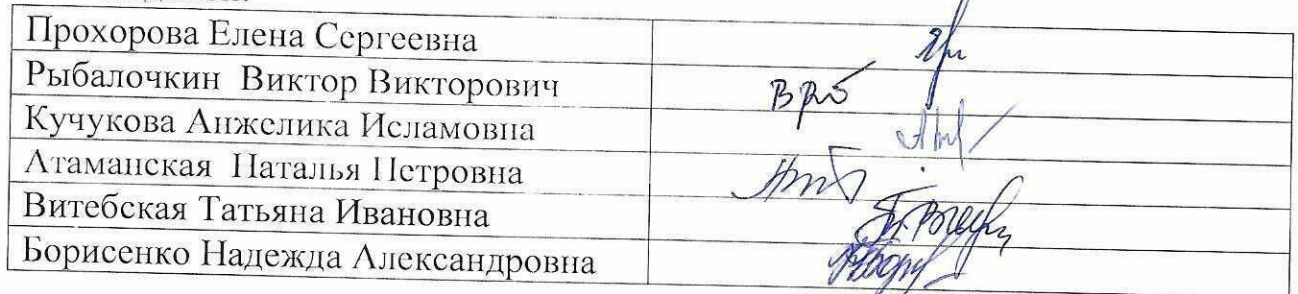 Прохорова Елена Сергеевна
Рыбалочкин Виктор Викторович
Кучукова Анжелика Исламовна
Атаманская Наталья Петровна
Витебская Татьяна Ивановна
Борисенко Надежда Александровна